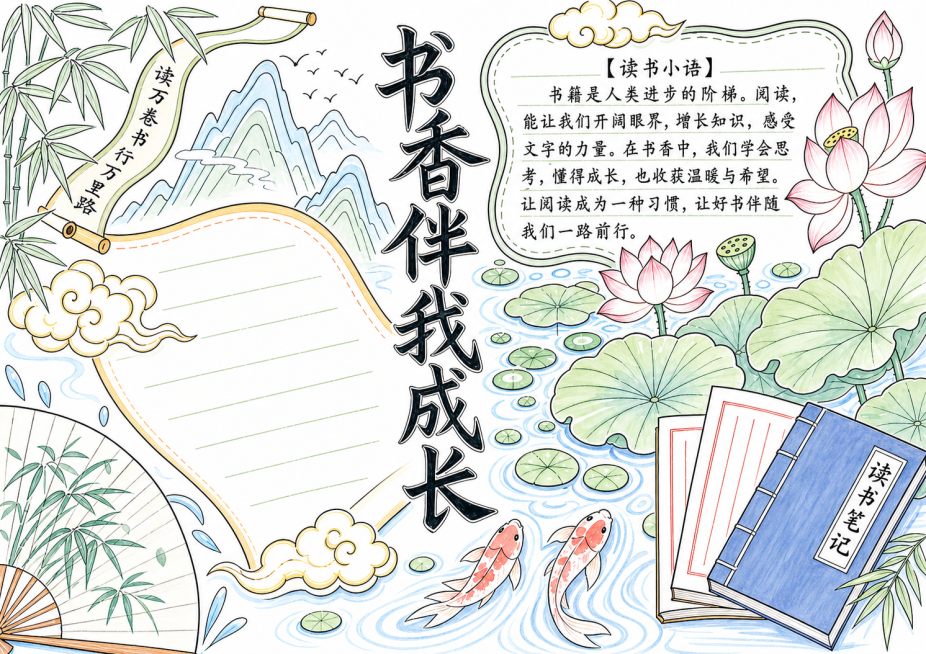 读万卷书 行万里路
书香伴我成长
【读书小语】
书籍是人类进步的阶梯。阅读，
能让我们开阔眼界，增长知识，感受
文字的力量。在书香中，我们学会思
考，懂得成长，也收获温暖与希望。
让阅读成为一种习惯，让好书伴随
我们一路前行。
读书笔记